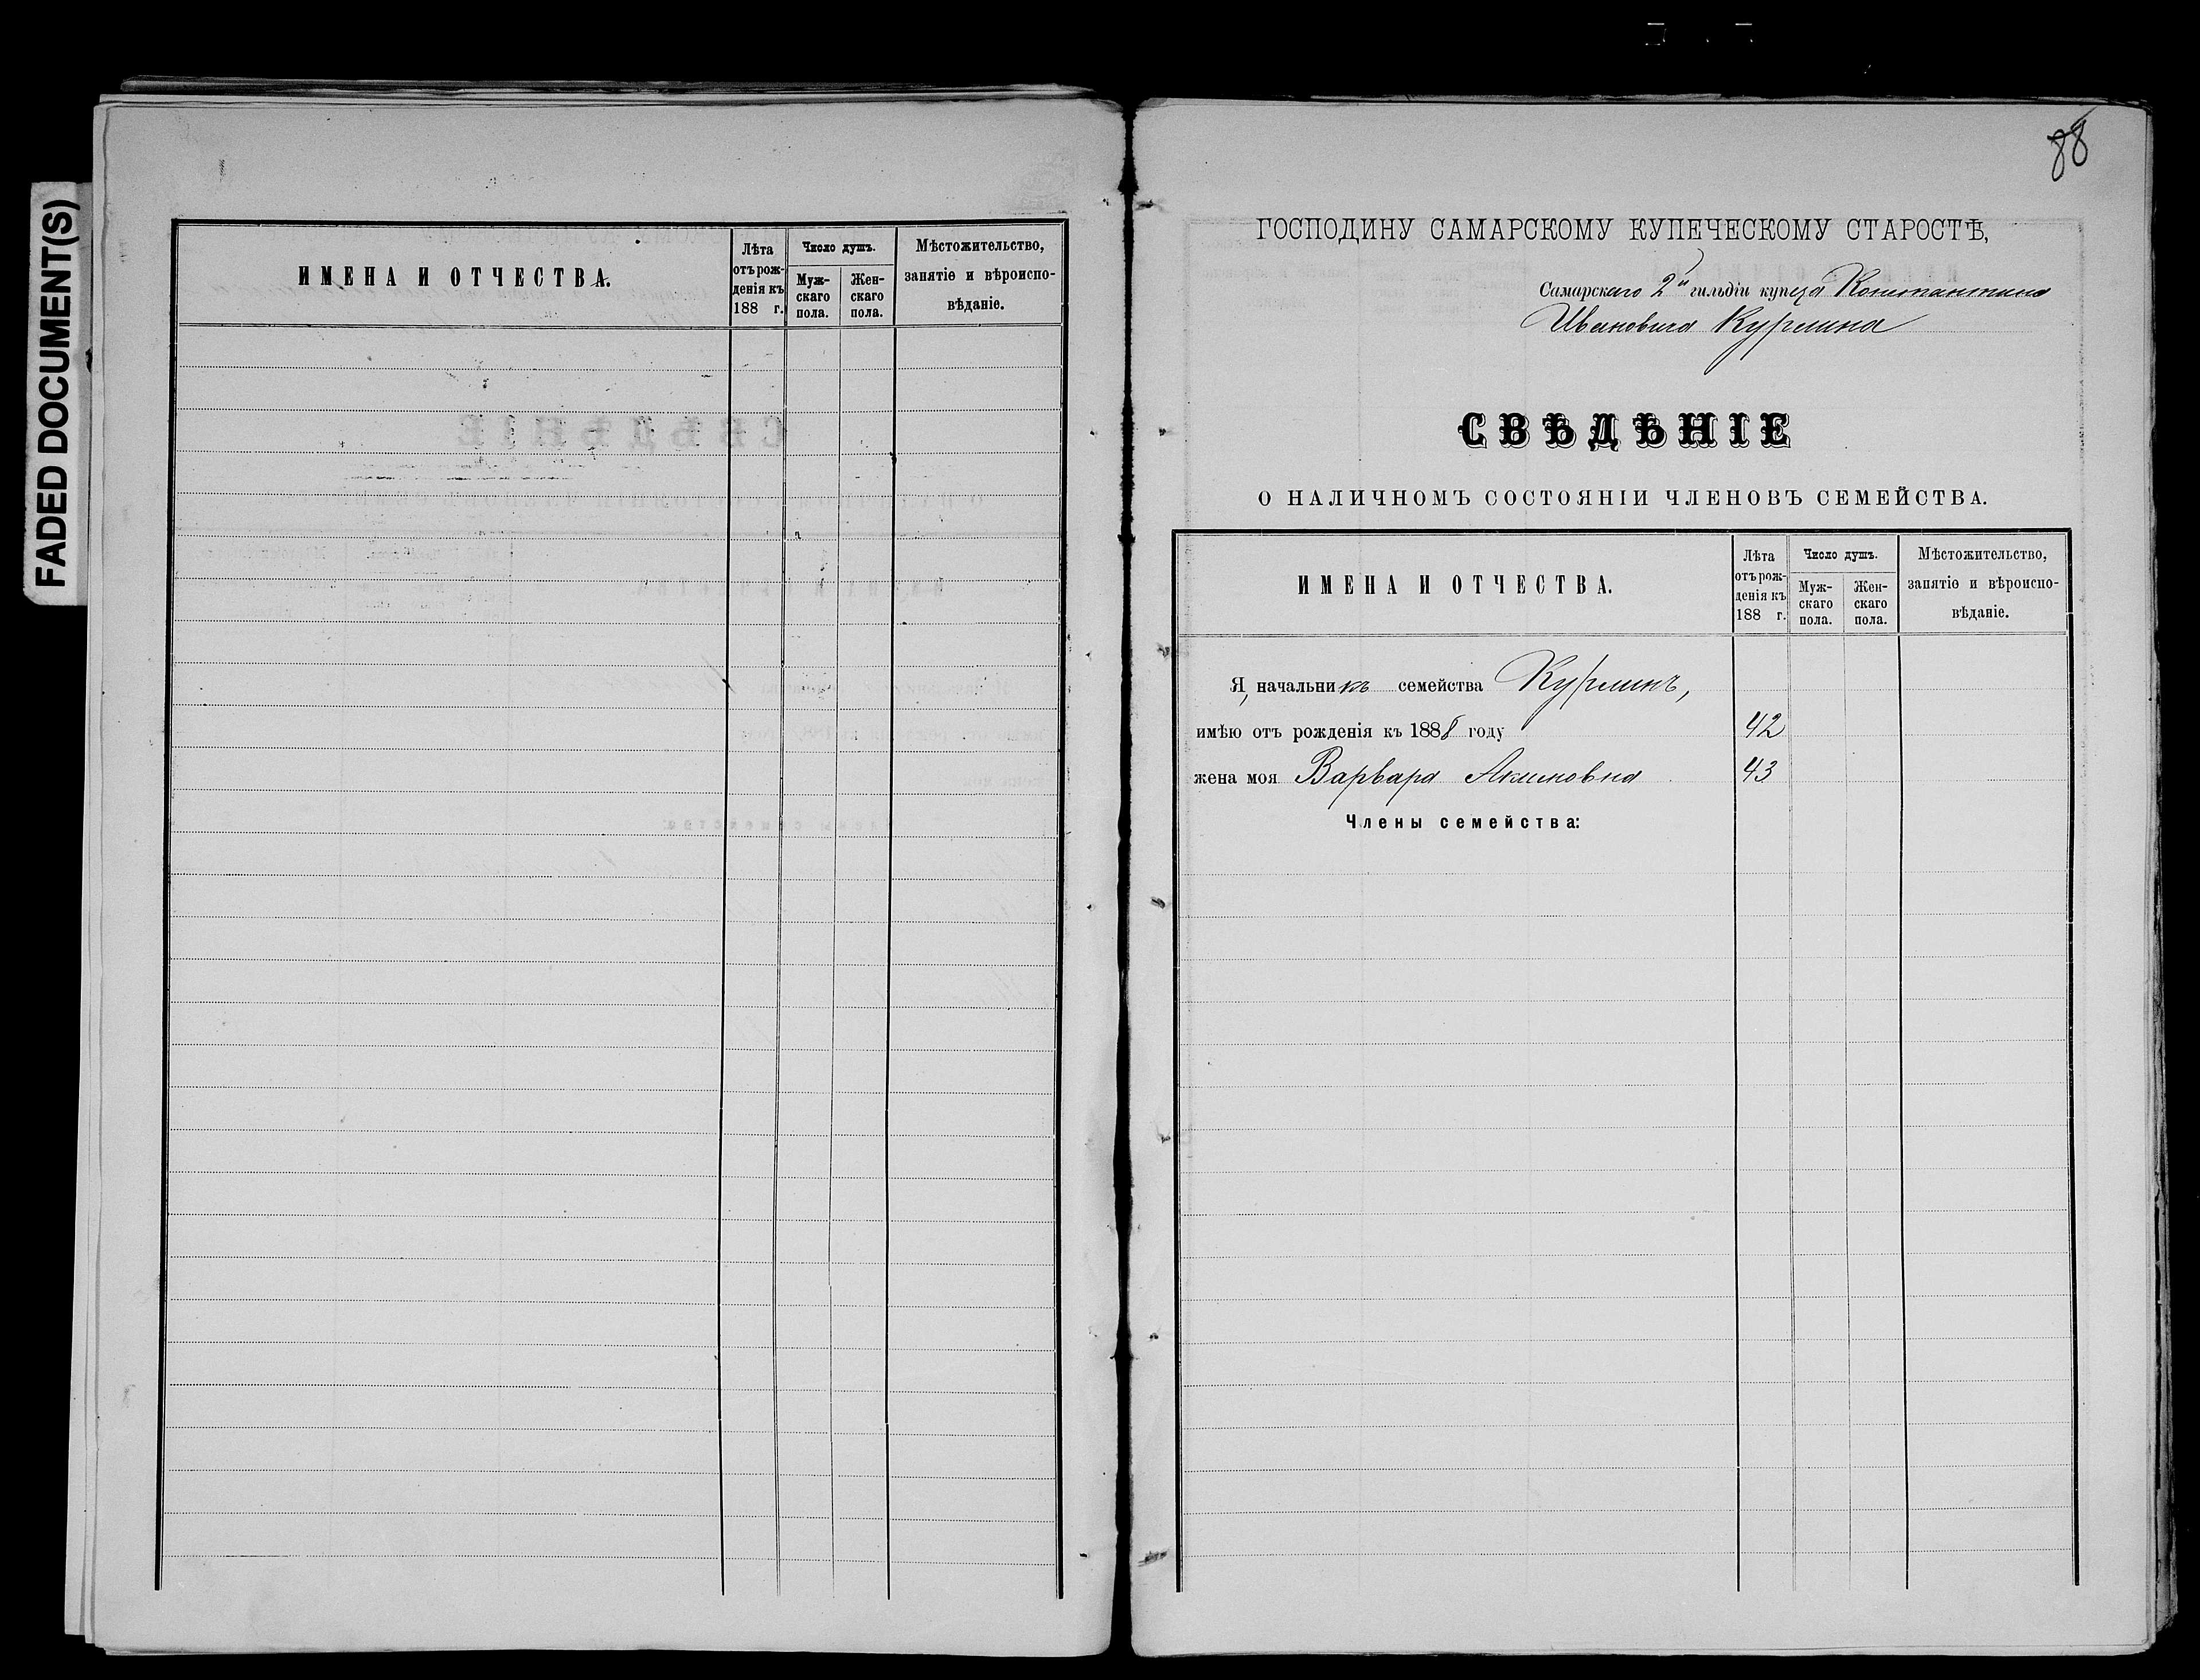 FADED DOCUMENT(S)
ИМЕНА И ОТЧЕСТВА.
Лѣта
отъ рож-
денія къ
188 г.
Число душъ.
Муж-
скаго
пола.
Жен-
скаго
пола.
Мѣстожительство,
занятіе и вѣроиспо-
вѣданіе.
88
ГОСПОДИНУ САМАРСКОМУ КУПЕЧЕСКОМУ СТАРОСТѢ,
Самарскаго 2й гильдіи купеца Константина
Ивановича Курлина
СВѢДѢНІЕ
О НАЛИЧНОМЪ СОСТОЯНІИ ЧЛЕНОВЪ СЕМЕЙСТВА.
ИМЕНА И ОТЧЕСТВА.
Лѣта
отъ рож-
денія къ
188 г.
Число душъ.
Муж-
скаго
пола.
Жен-
скаго
пола.
Мѣстожительство,
занятіе и вѣроиспо-
вѣданіе.
Я, начальникъ семейства Курлинъ,
имѣю отъ рожденія къ 1888 году 42
жена моя Варвара Акимовна 43
Члены семейства: